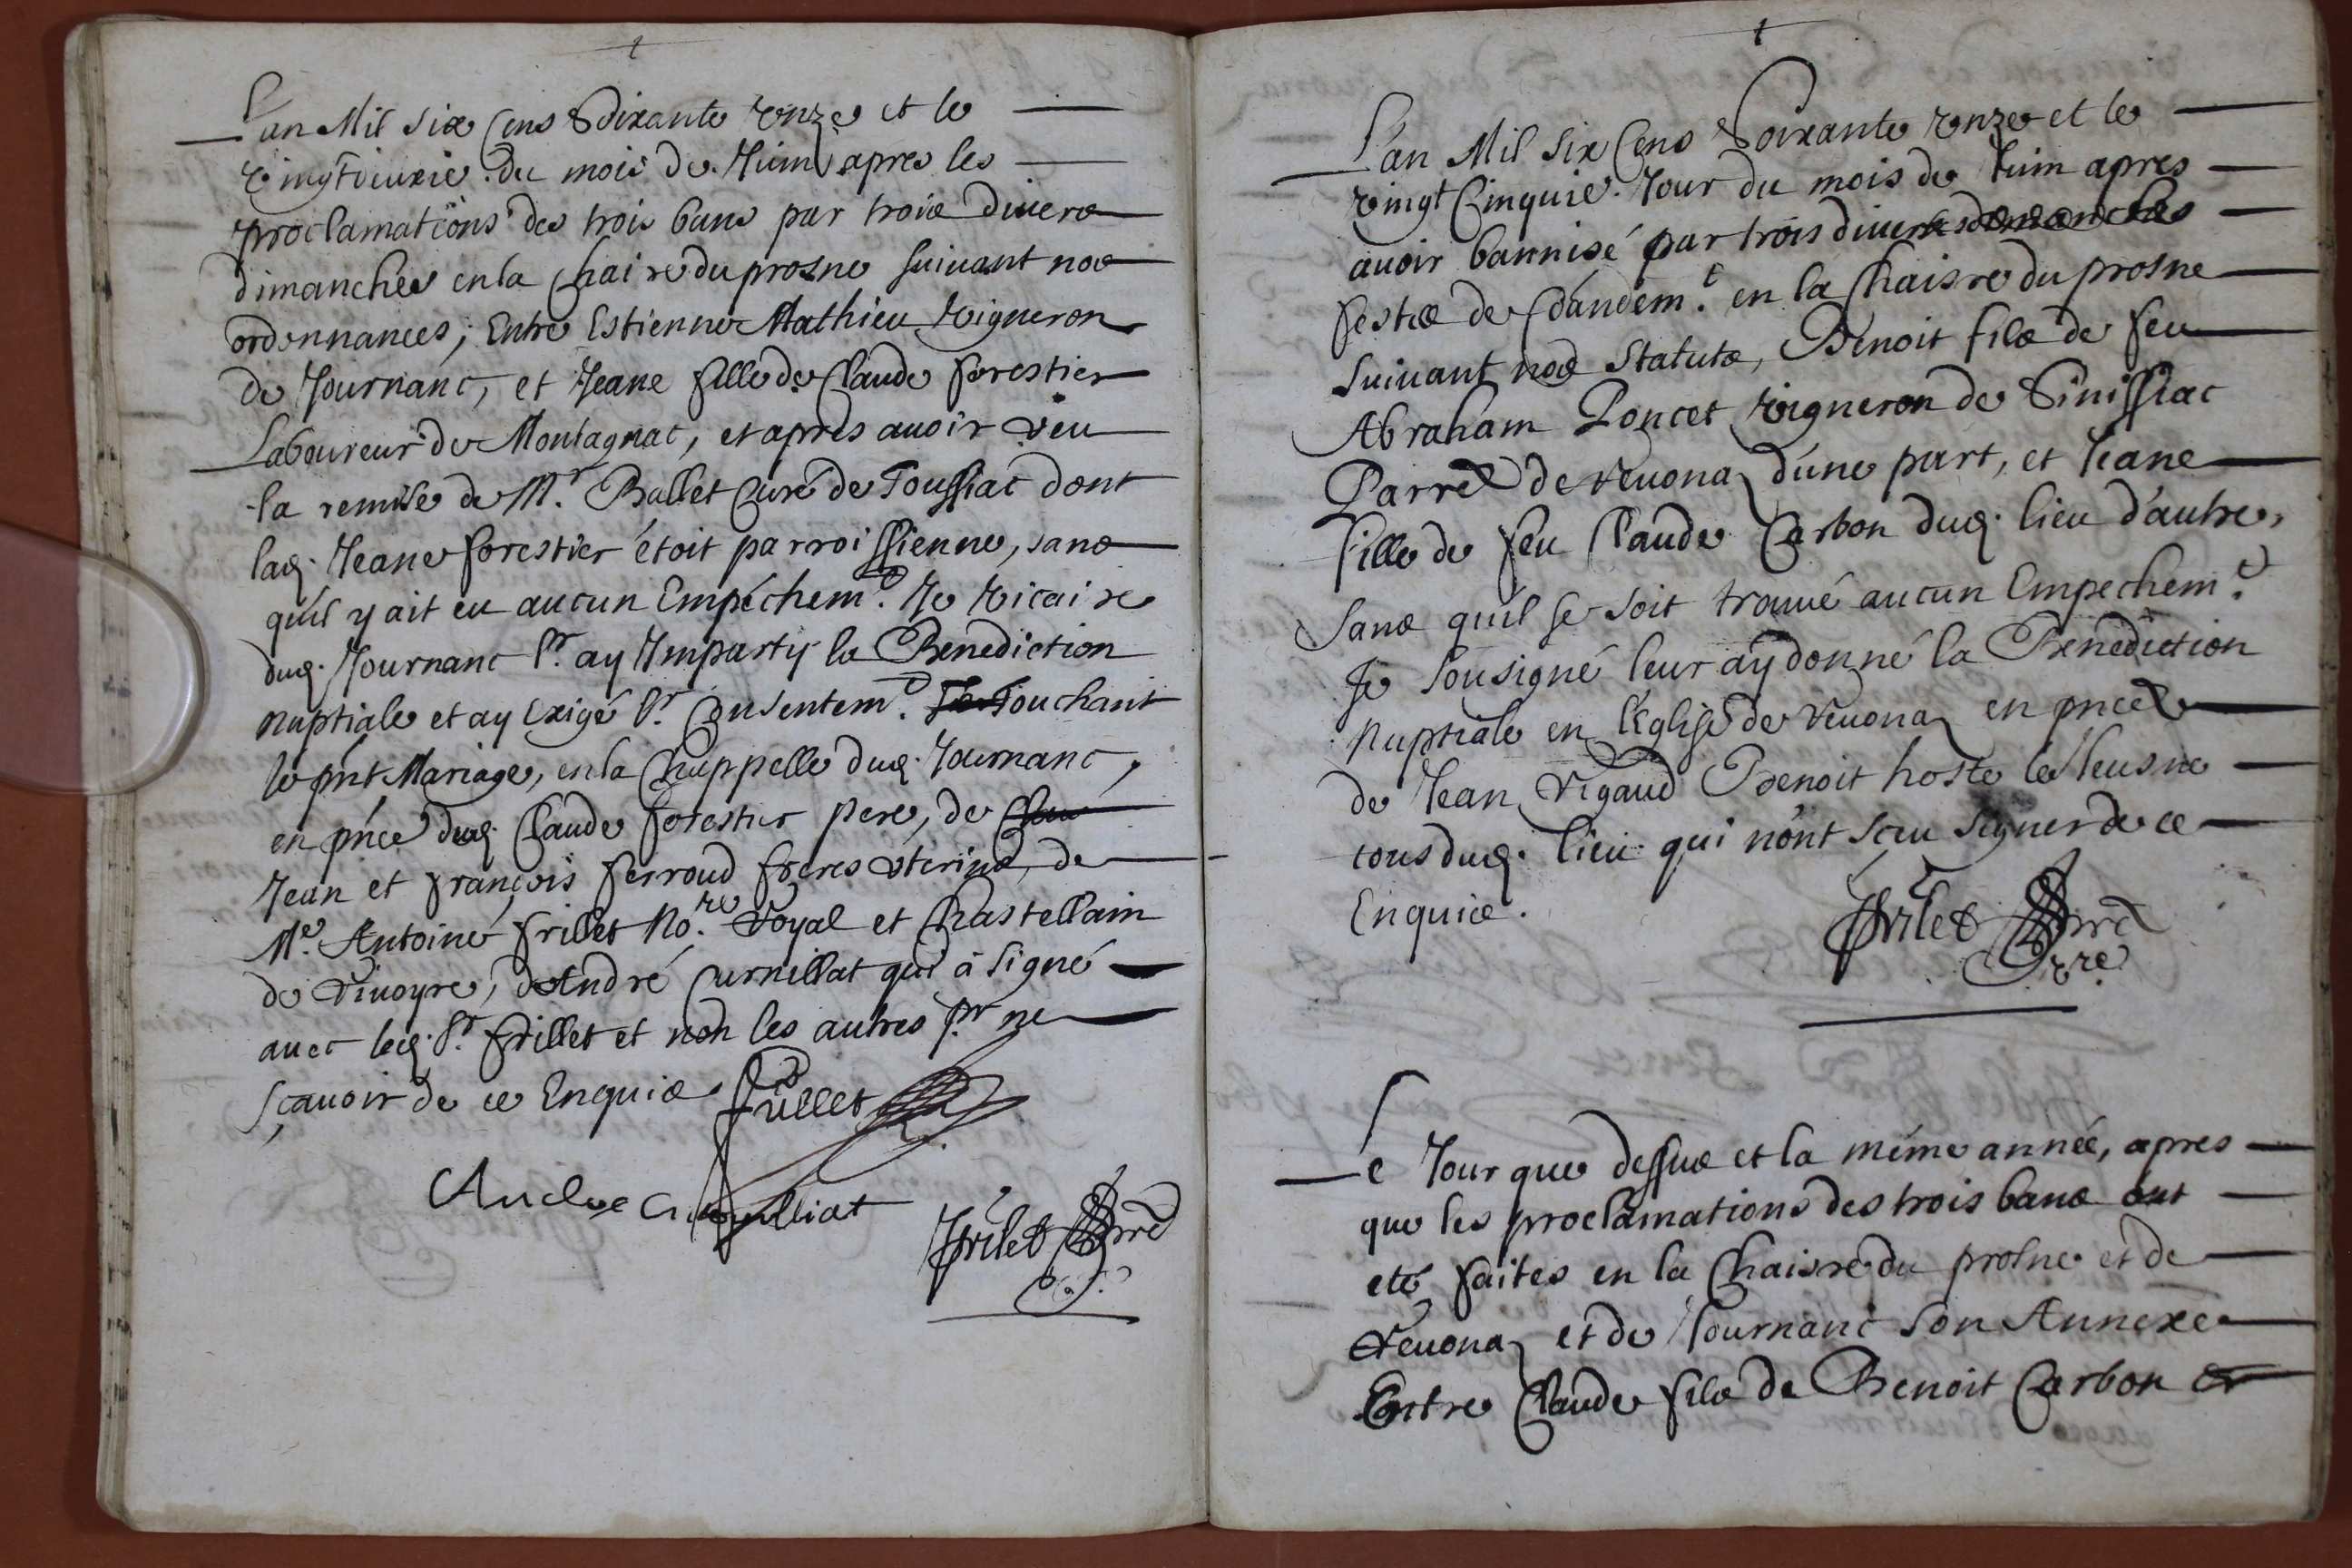 L'an Mil six Cens Soixante Unze et le
vingtdeuxie. du mois de Juin apres les
proclamations des trois bans par trois divers
dimanches en la Chaire du prosne suivant nos
ordonnances; Entre Estienne Mathieu Vigneron
de Journanc, et Jeane fille de Claude forestier
Laboureur de Montagnac, et apres avoir veu
la remise de Mr. Ballet Curé de Toussiac dont
lad. Jeane forestier étoit parroissienne, sans
qu'il y ait eu aucun Empéchemt. Je Vicaire
dud. Journanc lr. ay Imparty la Benediction
nuptiale et ay Exigé lr. Consentemt. Touchant
le pnt Mariage, en la Chappelle dud. Journanc,
en pnce dud. Claude forestier pere, de
Jean et françois ferroud freres Uterins, de
Me. Antoine frillet No.re Royal et Chastellain
de Vivoyre, d'André Curnillat qui à signé
avec led. Sr. frillet et non les autres pr ne
sçavoir de ce Enquis frillet
Andre Curnilliat
frilet pre
L'an Mil Six Cens Soixante Unze et le
vingt Cinquie. Jour du mois de Juin apres
avoir bannisé par trois divers dimanches
festes de Commandemt. en la Chaisre du prosne
suivant nos Statuts, Benoit fils de feu
Abraham Poncet Vigneron de Sinissiac
Parre de Vevona d'une part, et Jeane
fille de feu Claude Carbon dud. lieu d'autre,
Sans qu'il se soit trouvé aucun Empechemt.
Je Sousigné leur ay donné la Benediction
Nuptiale en l'Eglise de Vevona en pnce
de Jean Vigaud Benoit hoste le Jeusne
tous dud. lieu qui n'ont sceu signer de ce
Enquis.
frilet pre
Vre
Le Jour que dessus et la méme année, apres
que les proclamations des trois bans ont
eté faites en la Chaisre du prosne et de
Vevona et de Journanc son Annexe
Entre Claude fils de Benoit Carbon et